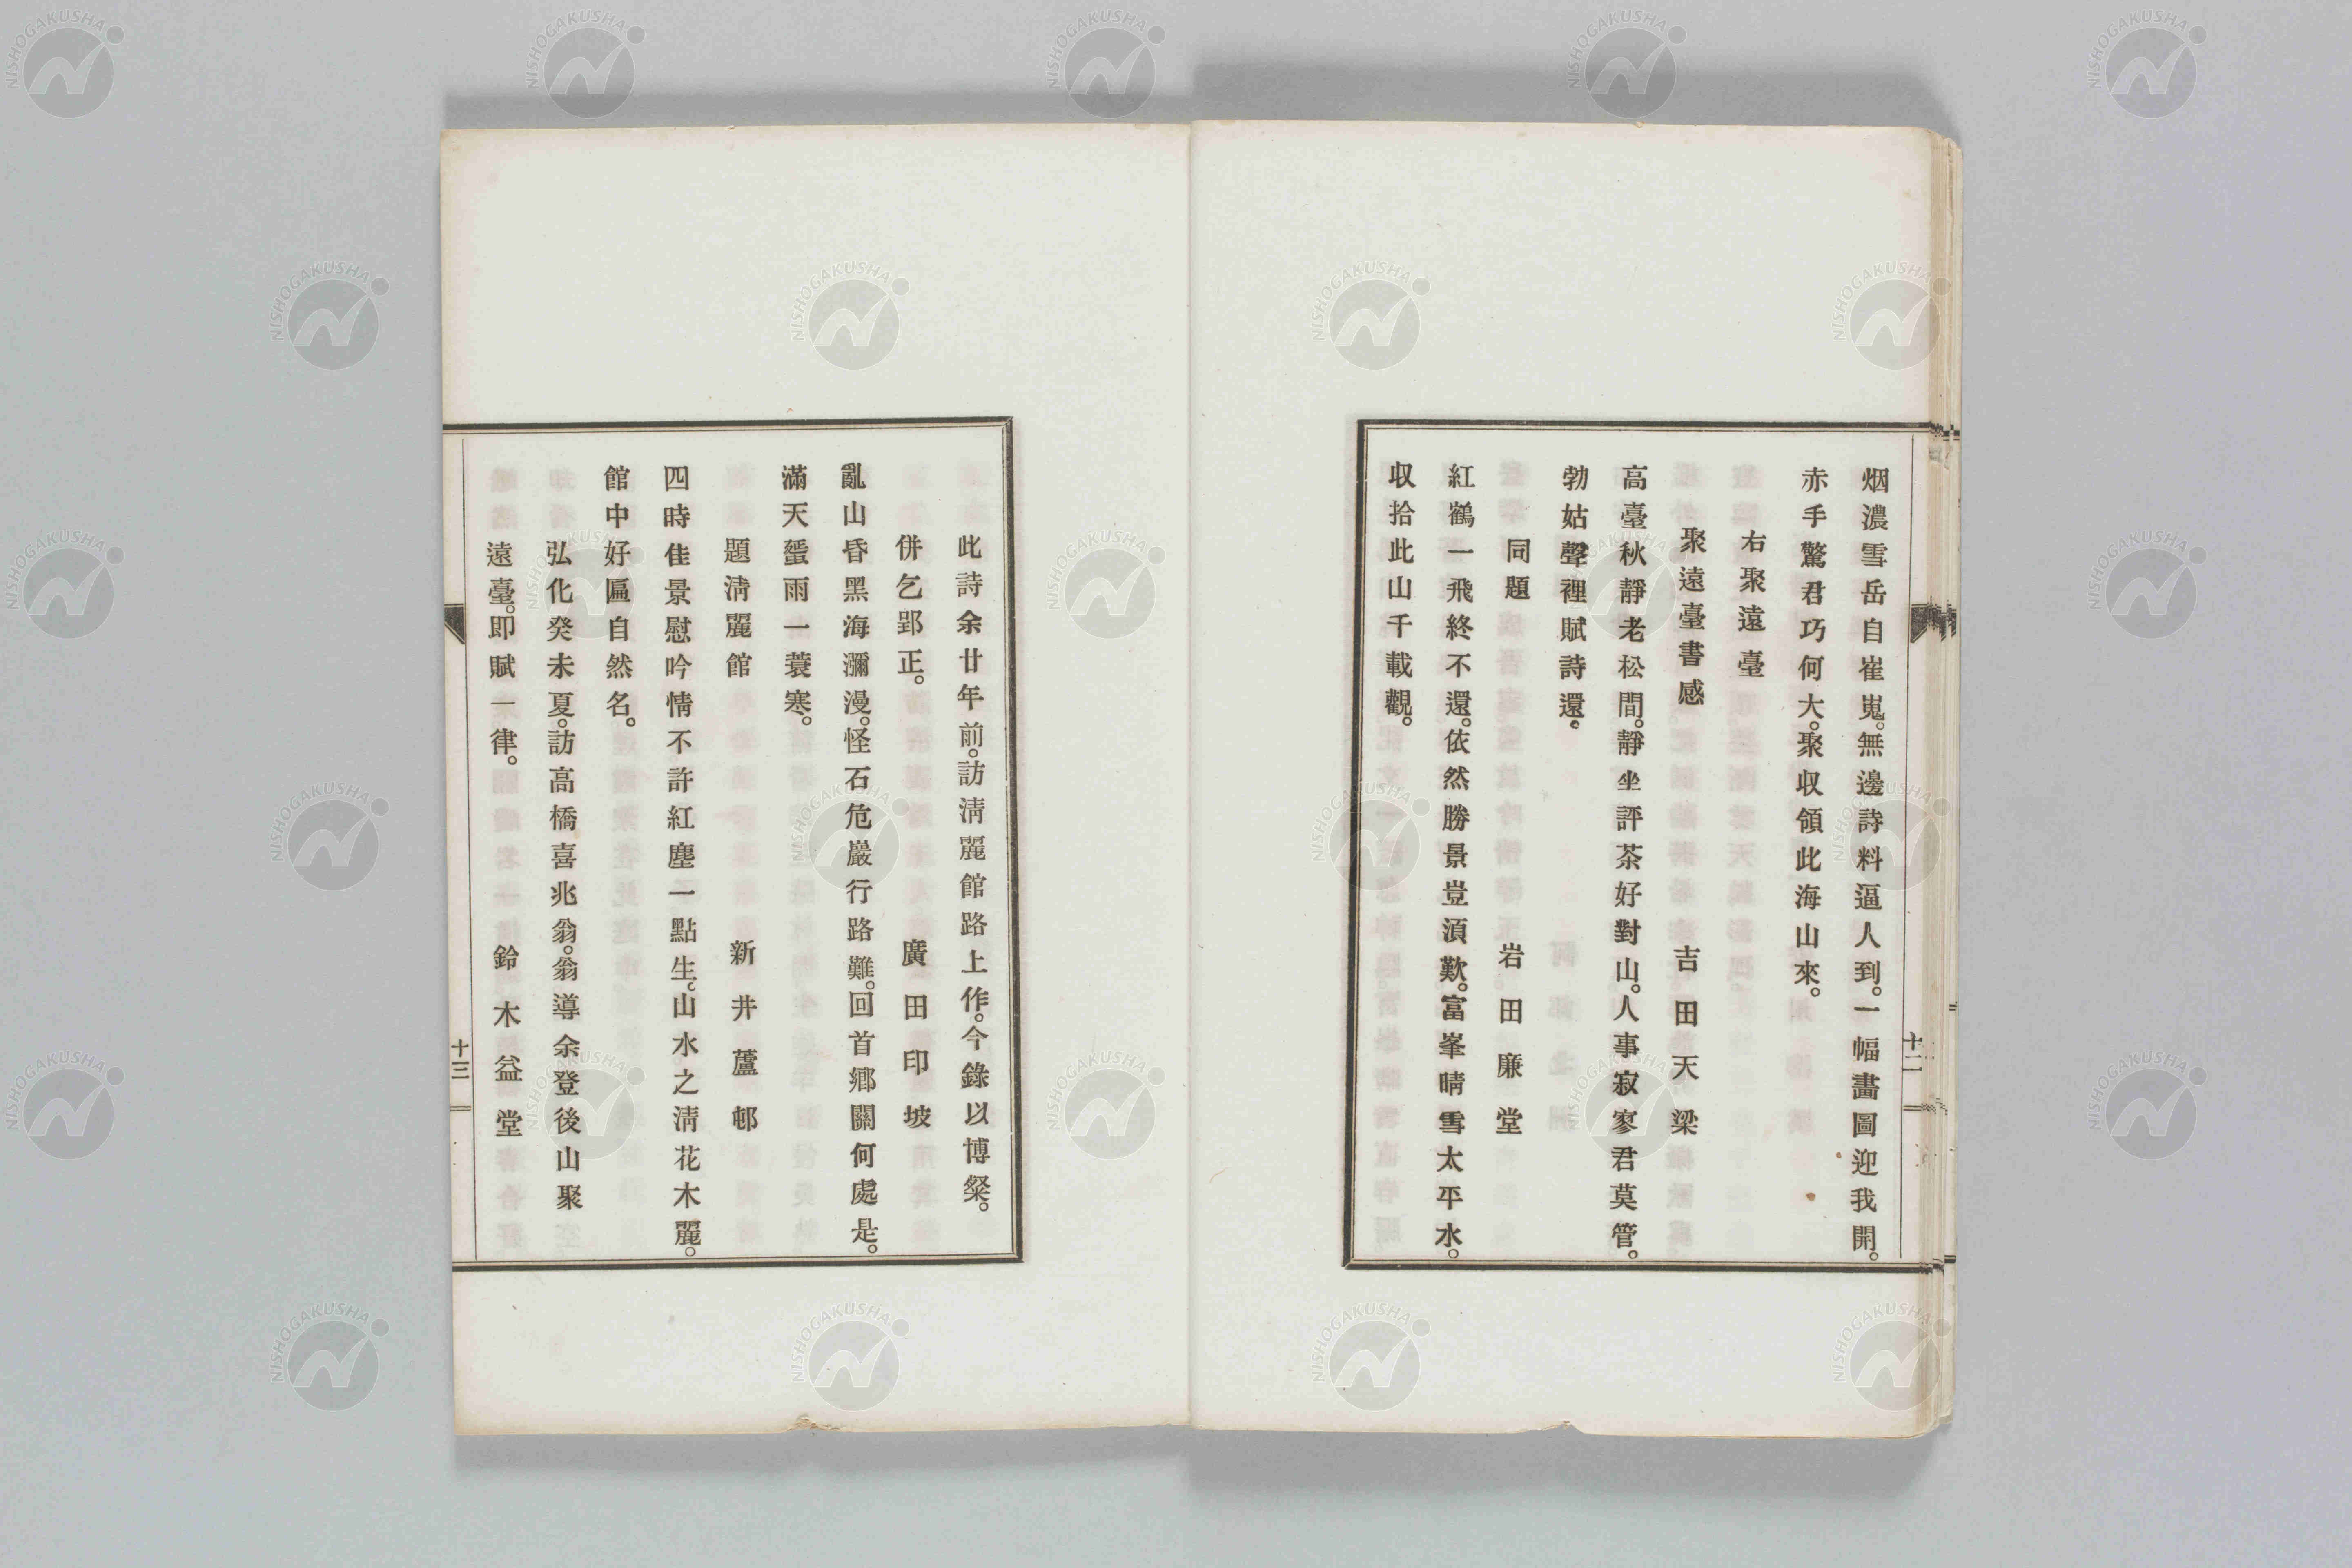 烟濃雪岳自崔嵬。無邊詩料逼人到。一幅畫圖迎我開。
赤手驚君巧何大。聚收領此海山來。
右聚遠臺
聚遠臺書感 吉田天梁
高臺秋靜老松間。靜坐評茶好對山。人事寂寥君莫管。
勃姑聲裡賦詩還。
同題 岩田廉堂
紅鶴一飛終不還。依然勝景豈湏歎。富峯晴雪太平水。
収拾此山千載觀。
十二
此詩余廿年前。訪淸麗館路上作。今錄以博粲。
併乞郢正。 廣田印坡
亂山昏黑海瀰漫。怪石危巖行路難。回首鄕關何處是。
滿天蜑雨一蓑寒。
題淸麗館 新井蘆邨
四時佳景慰吟情不許紅塵一點生。山水之淸花木麗。
館中好匾自然名。
弘化癸未夏。訪高橋喜兆翁。翁導余登後山聚
遠臺。卽賦一律。 鈴木益堂
十三
NISHOGAKUSHA